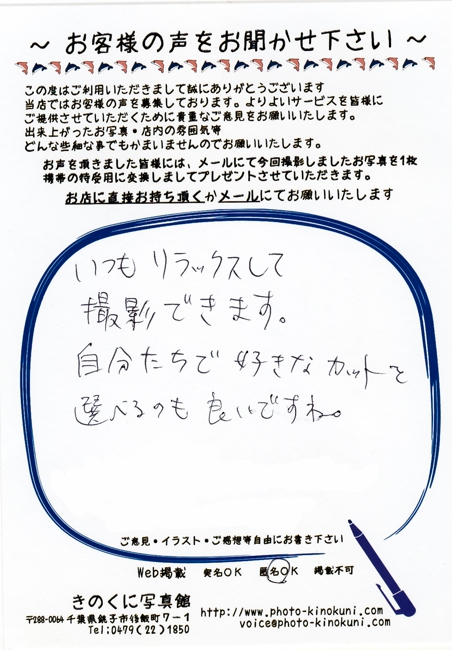 ～ お客様の声をお聞かせ下さい ～
この度はご利用いただきまして誠にありがとうございます
当店ではお客様の声を募集しております。よりよいサービスを皆様に
ご提供させていただくために貴重なご意見をお願いいたします。
出来上がったお写真・店内の雰囲気等
どんな些細な事でもかまいませんのでお願いいたします。
お声を頂きました皆様には、メールにて今回撮影しましたお写真を1枚
携帯の待受用に変換しましてプレゼントさせていただきます。
お店に直接お持ち頂くかメールにてお願いいたします
いつも リラックスして
撮影できます。
自分たちで 好きな カットを
選べるのも 良いですね。
ご意見・イラスト・ご感想等自由にお書き下さい
Web掲載 実名OK 匿名OK 掲載不可
きのくに写真館
〒288-0064 千葉県銚子市猿飯町7－1
Tel:0479(22)1850
http://www.photo-kinokuni.com/
voice@photo-kinokuni.com